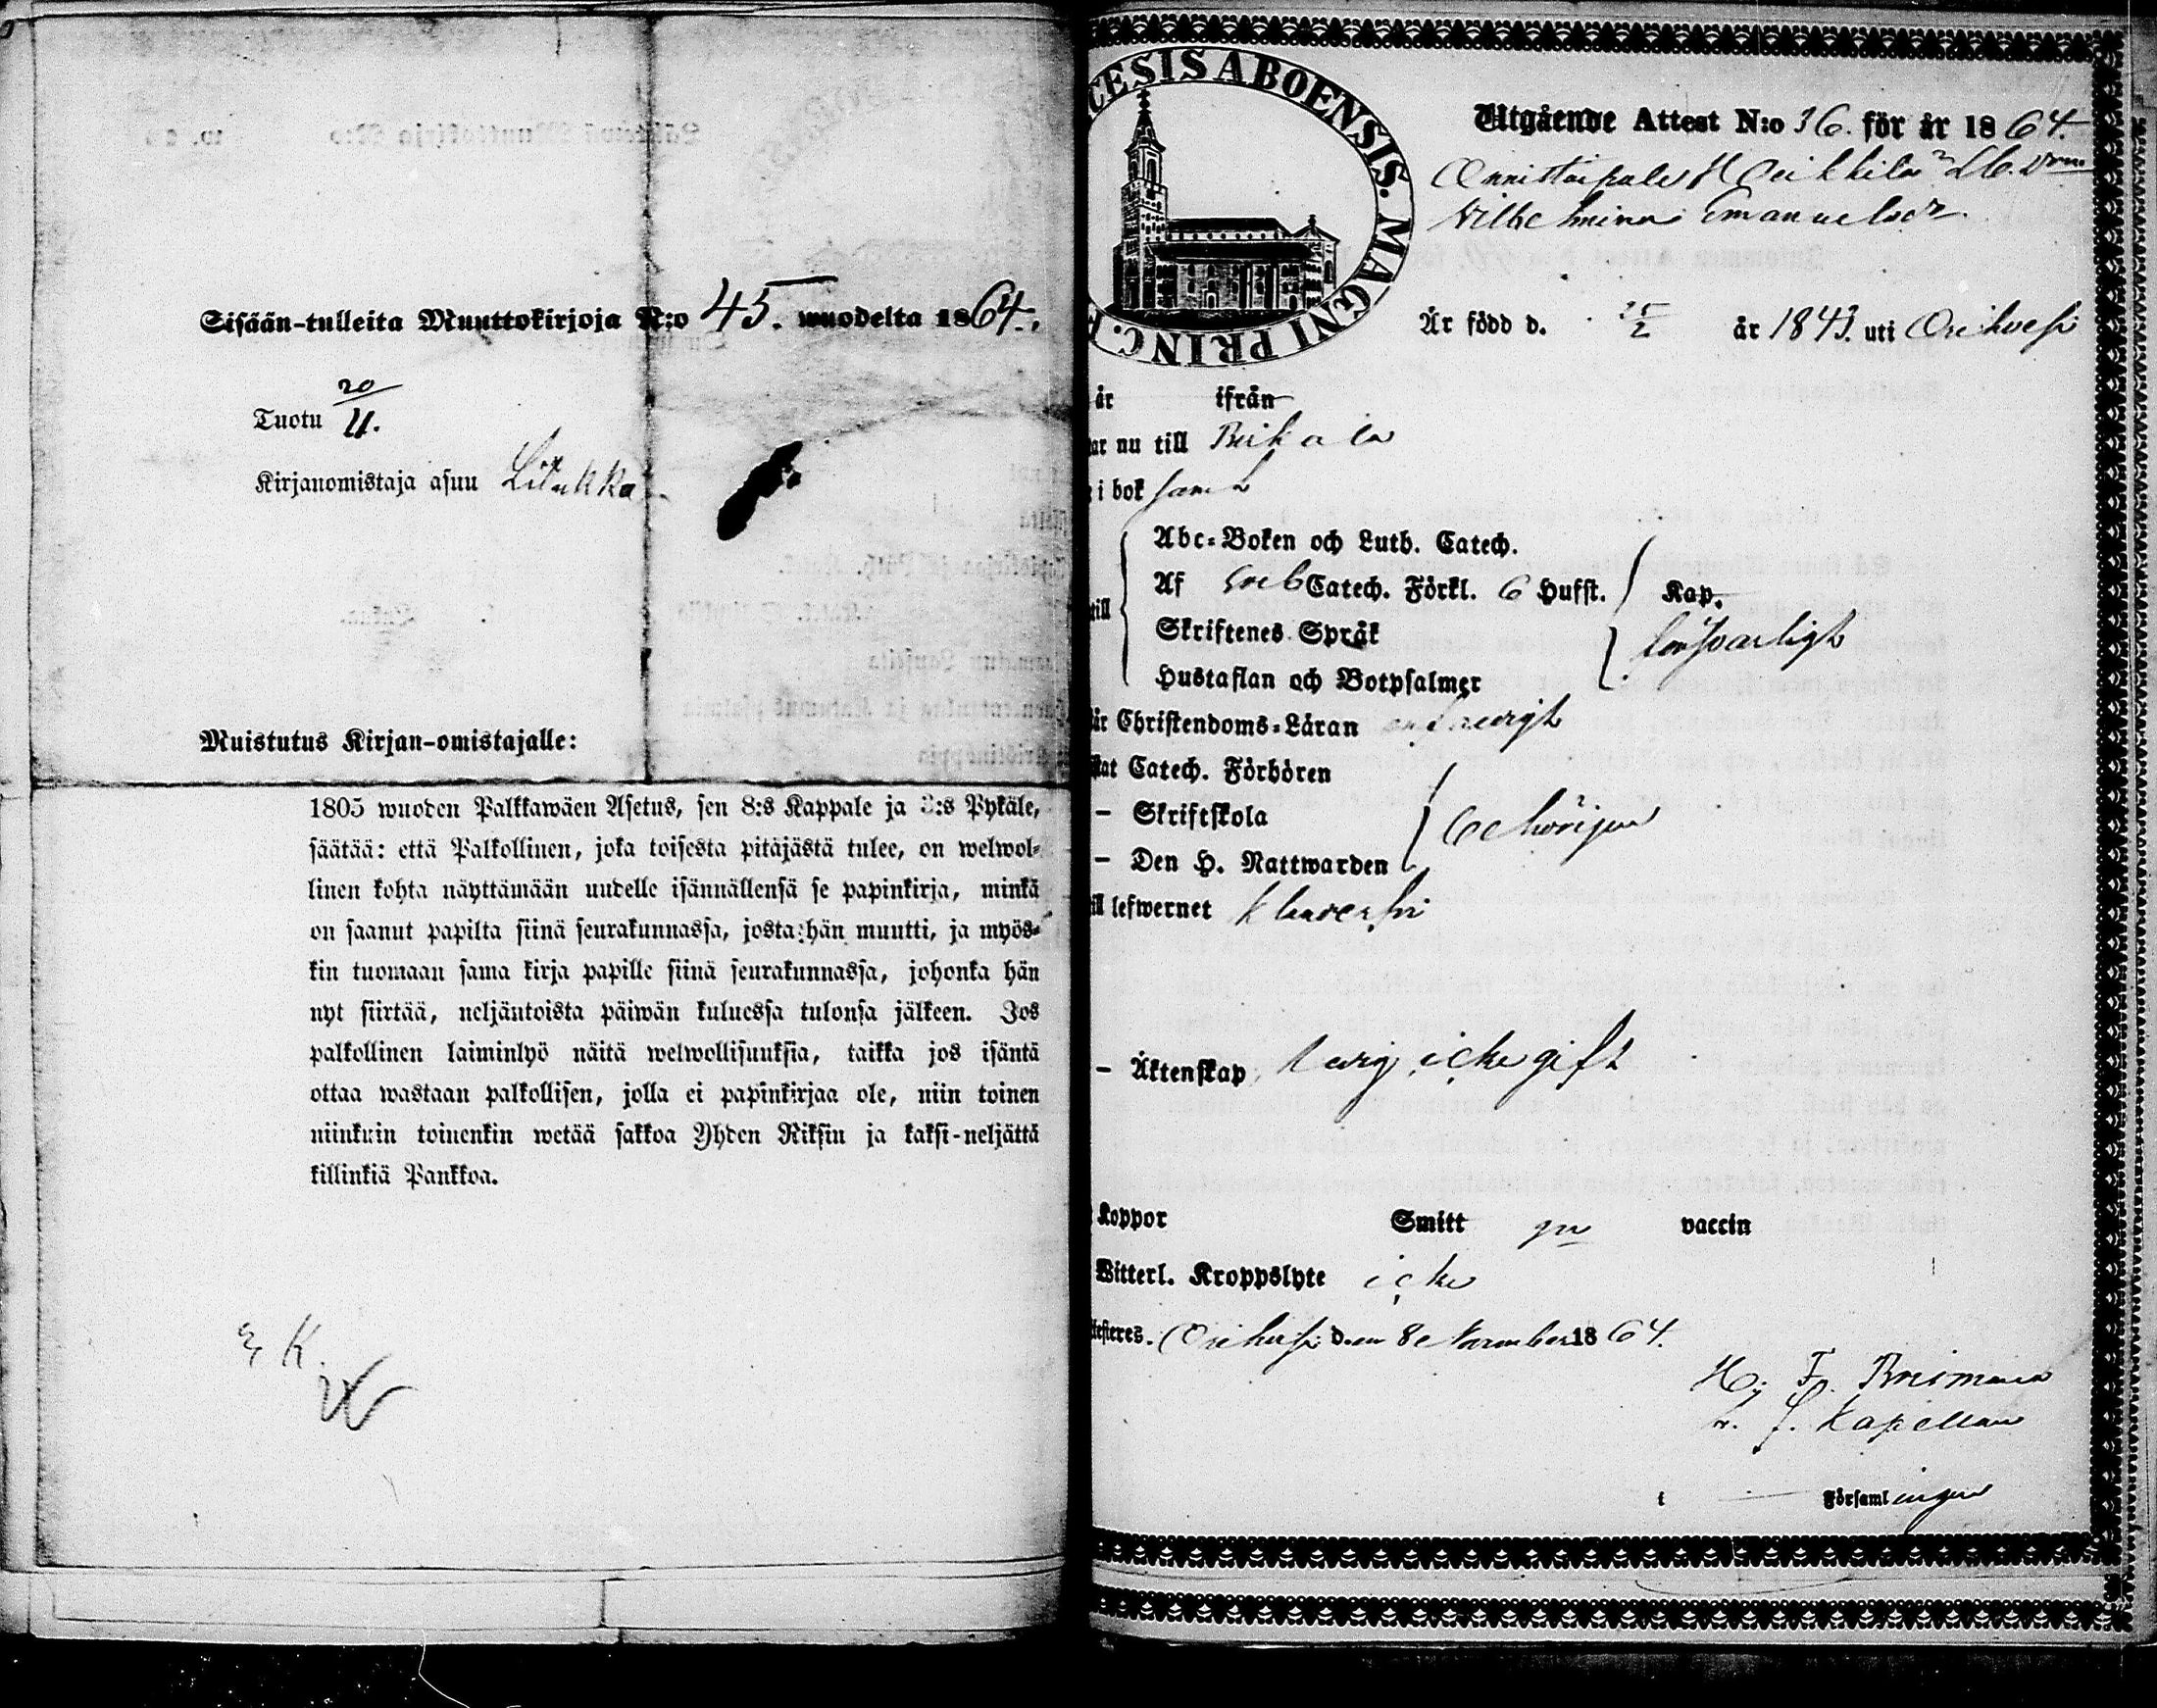 Sisään-tulleita Muuttokirjoja N:o 45. wuodelta 1864.
Tuotu 20/11.
Kirjanomistaja asuu Liukka
Muistutus Kirjan-omistajalle:
1805 wuoden Palkkawäen Asetus, sen 8:s Kappale ja 3:s Pykäle,
säätää: että Palkollinen, joka toisesta pitäjästä tulee, on welwol-
linen kohta näyttämään uudelle isännällensä se papinkirja, minkä
on saanut papilta siinä seurakunnassa, josta hän muutti, ja myös-
kin tuomaan sama kirja papille siinä seurakunnassa, johonka hän
nyt siirtää, neljäntoista päiwän kuluessa tulonsa jälkeen. Jos
palkollinen laiminlyö näitä welwollisuuksia, taikka jos isäntä
ottaa wastaan palkollisen, jolla ei papinkirjaa ole, niin toinen
niinkuin toinenkin wetää sakkoa Yhden Riksin ja kaksi-neljättä
killinkiä Pankkoa.
CESIS ABOENSIS. MAGNI PRINC. F
Utgående Attest N:o 36. för år 1864.
Wilhelmina Emanuelsdr.
År född d. 25/2 år 1843. uti Orihvesi
år ifrån
ar nu till
i bok samt
till
Abc-Boken och Luth. Catech.
Af Sveb Catech. Förkl. 6 Hufst.
Skriftenes Språk
Hustaflan och Botpsalmer
Kap.
försvarligt
är Christendoms-Läran
stat Catech. Förhören
– Skriftskola
– Den H. Nattwarden
behörigen
ill lefwernet klanderfri
– Äktenskap, ledig, icke gift
Koppor Smitt genom vaccin
Witterl. Kroppslyte icke
testeres. Orihvesi den 8 November 1864.
Hj. F.
v. p. Kapellan
i Församlingen